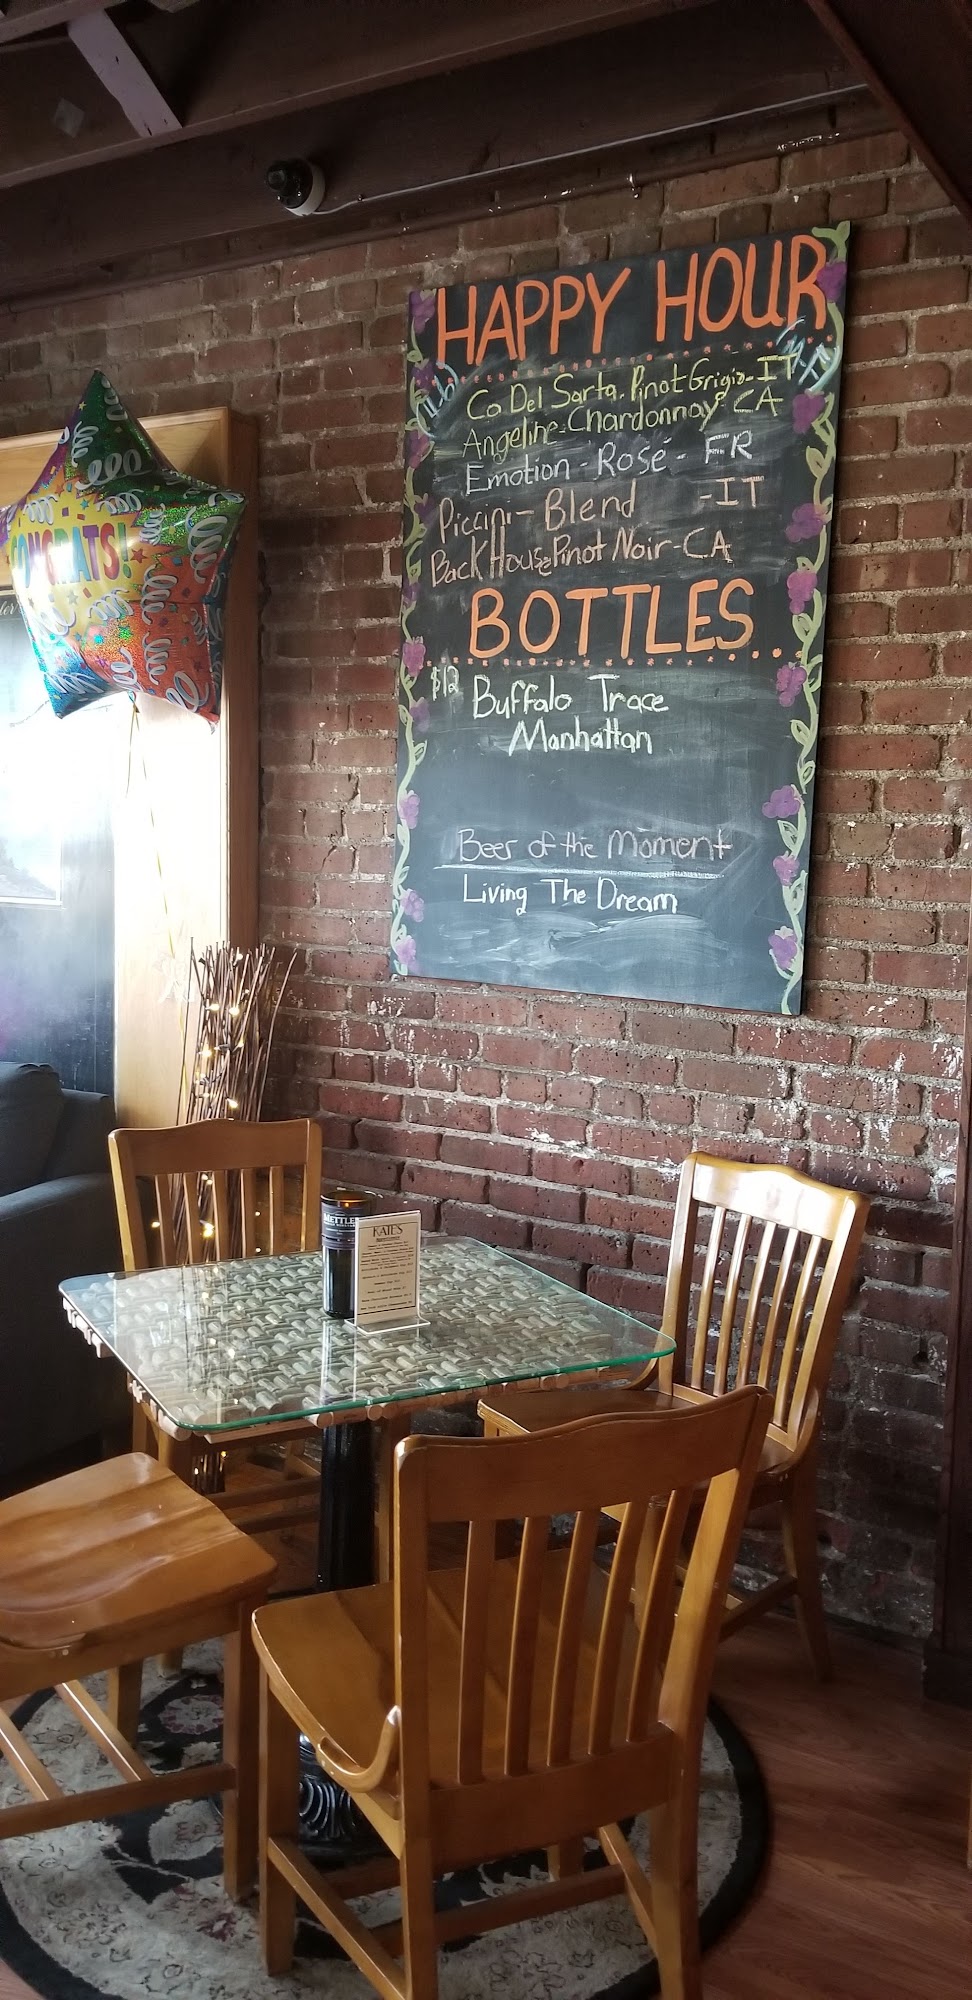 HAPPY HOUR
Ca Del Sarta. Pinot Grigio-IT
Angeline-Chardonnay-CA
Emotion - Rosé - FR
Piccini - Blend -IT
Back House Pinot Noir-CA
BOTTLES
$12 Buffalo Trace
Manhattan
Beer of the Moment
Living The Dream
CONGRATS!
METTLE
KATE'S